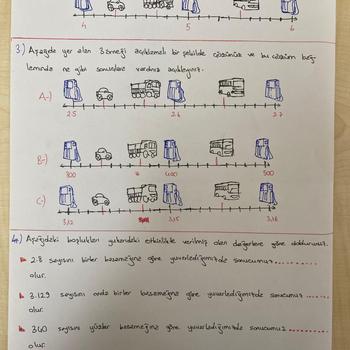 4 5 6
3) Aşağıda yer alan 3 örneği açıklamalı bir şekilde çözünüz ve bu çözüm bağ-
lamında ne gibi sonuçlara vardınız açıklayınız.
A-)
2.5 2.6 2.7
B-)
300 400 500
C-)
3,12 3,15 3,18
4) Aşağıdaki boşlukları yukarıdaki etkinlikte verilmiş olan değerlere göre doldurunuz.
2.8 sayısını birler basamağına göre yuvarladığımızda sonucumuz ..........
olur.
3.129 sayısını onda birler basamağına göre yuvarladığımızda sonucumuz ..........
olur.
360 sayısını yüzler basamağına göre yuvarladığımızda sonucumuz ..........
olur.